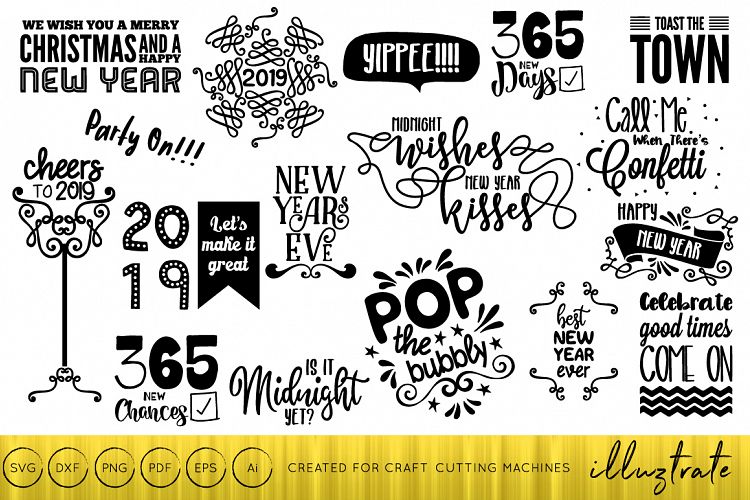 WE WISH YOU A MERRY
CHRISTMAS AND A HAPPY
NEW YEAR
2019
YIPPEE!!!!
365
NEW
Days
TOAST THE
TOWN
Party On!!!
cheers
TO 2019
MIDNIGHT
wishes
NEW YEAR
kisses
Call Me
When There's
Confetti
20
19
Let's
make it
great
NEW
YEARS
EVE
HAPPY
NEW YEAR
POP
the
bubbly
best
NEW
YEAR
ever
Celebrate
good times
COME ON
365
NEW
Chances
IS IT
Midnight
YET?
SVG DXF PNG PDF EPS Ai CREATED FOR CRAFT CUTTING MACHINES illuztrate